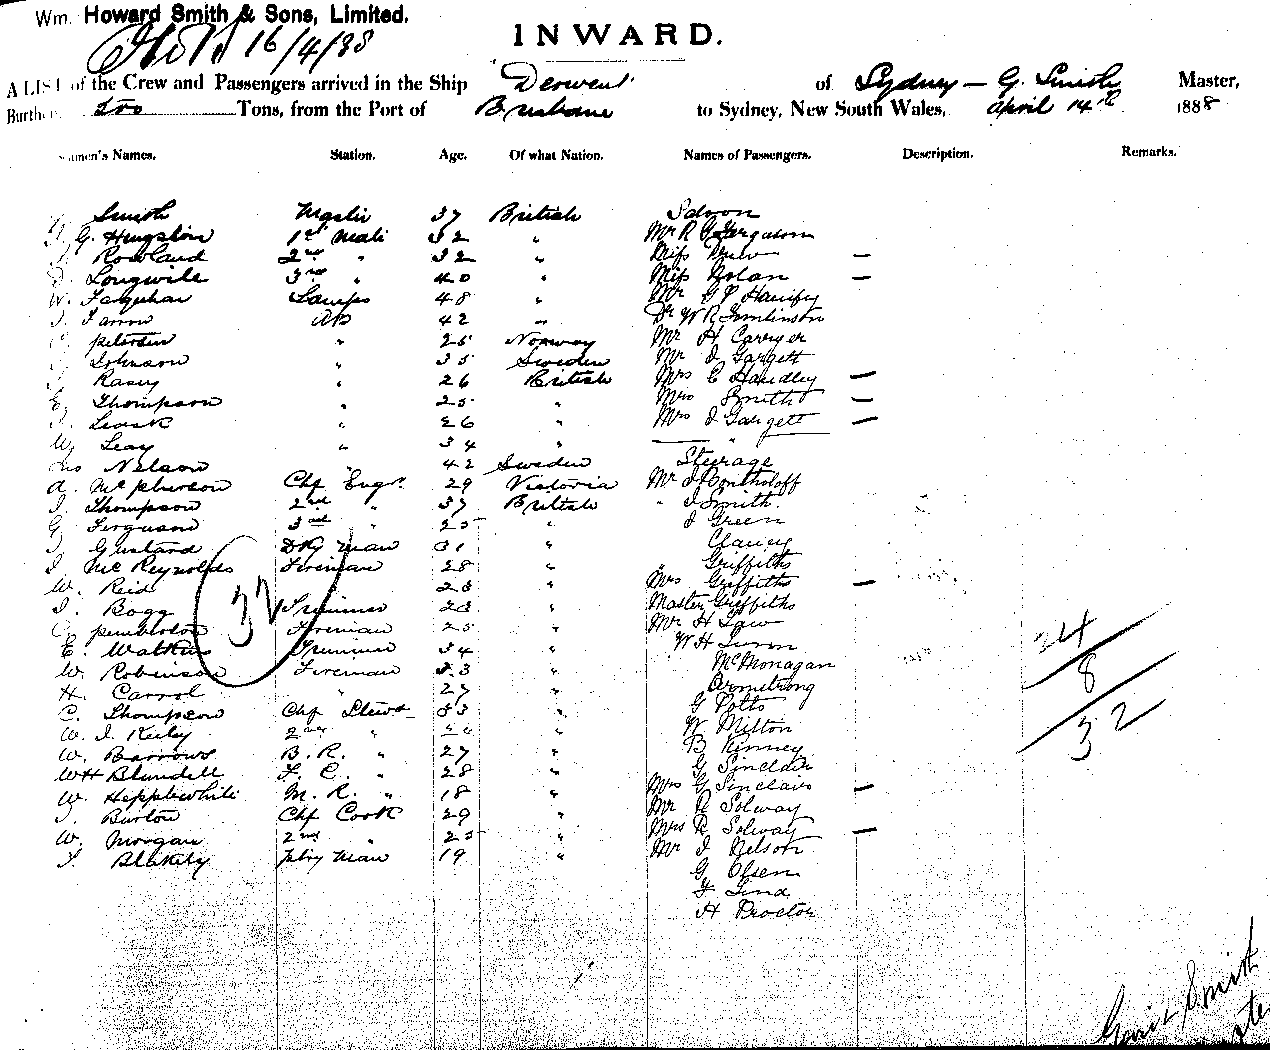 Wm. Howard Smith & Sons, Limited.
16/4/88
INWARD.
A LIST of the Crew and Passengers arrived in the Ship Derwent of Sydney — G. Smith Master,
Burthen Tons, from the Port of Brisbane to Sydney, New South Wales, April 14th 1888
Seamen's Names. Station. Age. Of what Nation. Names of Passengers. Description. Remarks.
Smith Master 37 British Saloon
G. Hugston 1st Mate 32 " Mr R G Ferguson
Rowland 2nd " 32 " Miss —
Longwile 3rd " 40 " Miss Nolan —
W. Farquhar Lamps 48 " Mr G P Hanify
J. Farrow AB 42 " Dr W R Tomlinson
Petersen " 25 Norway Mr H Carryer
Johnson " 35 Sweden Mr J Gargett
" 26 British Mrs C Handley —
Thompson " 25 " Smith —
J. Leask " 26 " Mrs J Gargett —
W. Leay " 34 "
Nelson " 42 Sweden Steerage
A. McPherson Chf Engr. 29 Victoria Mr J
J. Thompson 2nd " 37 British " J Smith.
G. Ferguson 3rd " 25 " J Green
J Gustard Dky man 31 " Clancy
J. McReynolds Fireman 28 " Griffiths
W. Reid " Mrs Griffiths —
J. Bogg Trimmer 23 " Master Griffiths
C. Pemberton Fireman 25 " Mr H Law
E. Watkins Trimmer 34 " W H Lunn
W. Robinson Fireman 33 " McMonagan
H. Carrol " 27 " Armstrong
C. Thompson Chf Stewd 33 " G Potts
W. J. Kirby 2nd " " W Milton
W. Barrows B. R. " 27 " B Kinney
W H Blundell F. C. " 28 " G Sinclair
W. Hepplewhite M. R. " 18 " Mrs G Sinclair —
J. Burton Chf Cook 29 " Mr R Solway
W. Morgan 2nd " 25 " Mrs R Solway —
J. Blakely Ptry man 19 " Mr J Nelson
G Olsen
F Lind
H Proctor
32
24
8
32
Smith